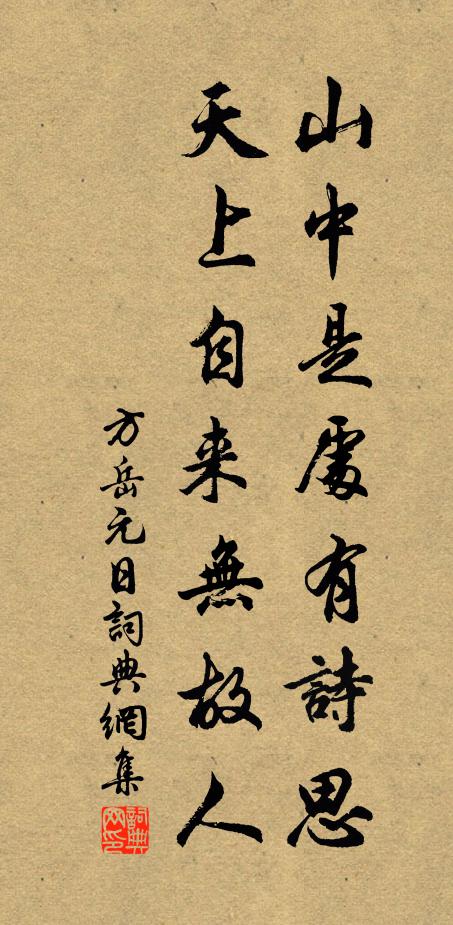 山中是處有詩思
天上自来無故人
方岳元日詞典網集
詞典網印